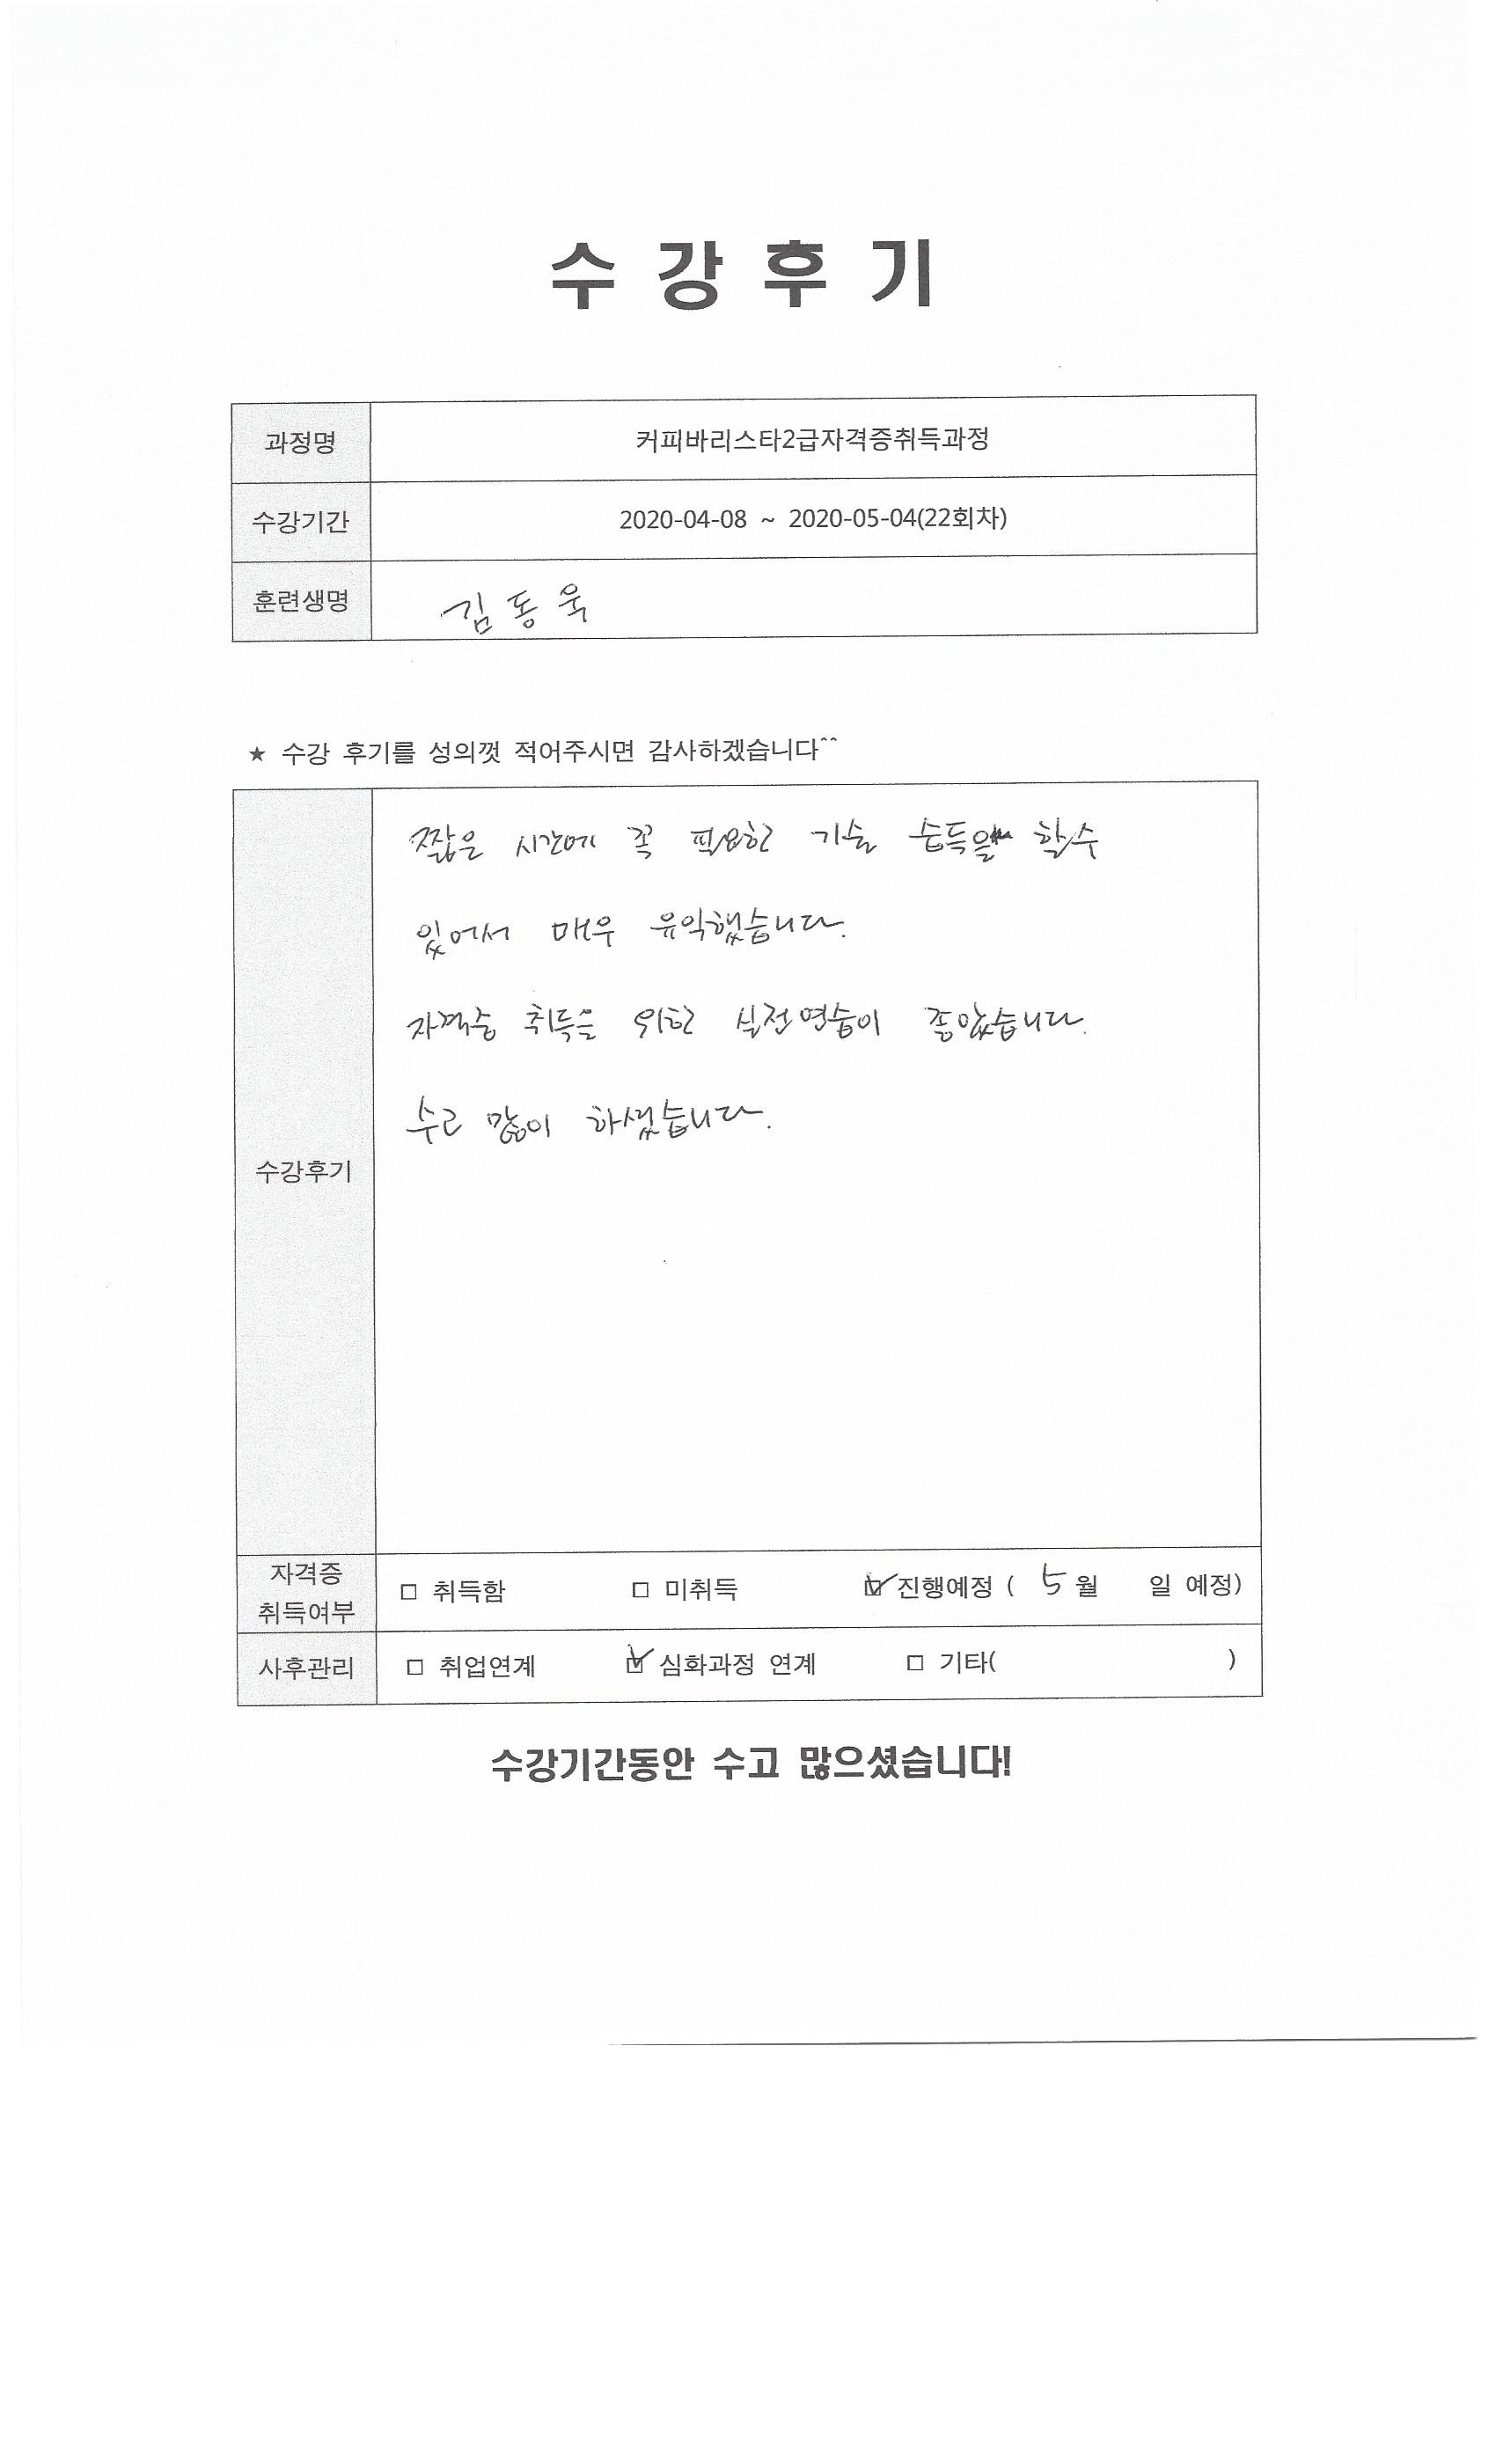 수 강 후 기
과정명 커피바리스타2급자격증취득과정
수강기간 2020-04-08 ~ 2020-05-04(22회차)
훈련생명 김동욱
★ 수강 후기를 성의껏 적어주시면 감사하겠습니다^^
짧은 시간에 꼭 필요한 기술 습득을 할수
있어서 매우 유익했습니다.
자격증 취득을 위한 실전연습이 좋았습니다.
수고 많이 하셨습니다.
수강후기
자격증
취득여부
□ 취득함 □ 미취득 ☑ 진행예정 ( 5월 일 예정)
사후관리 □ 취업연계 ☑ 심화과정 연계 □ 기타( )
수강기간동안 수고 많으셨습니다!